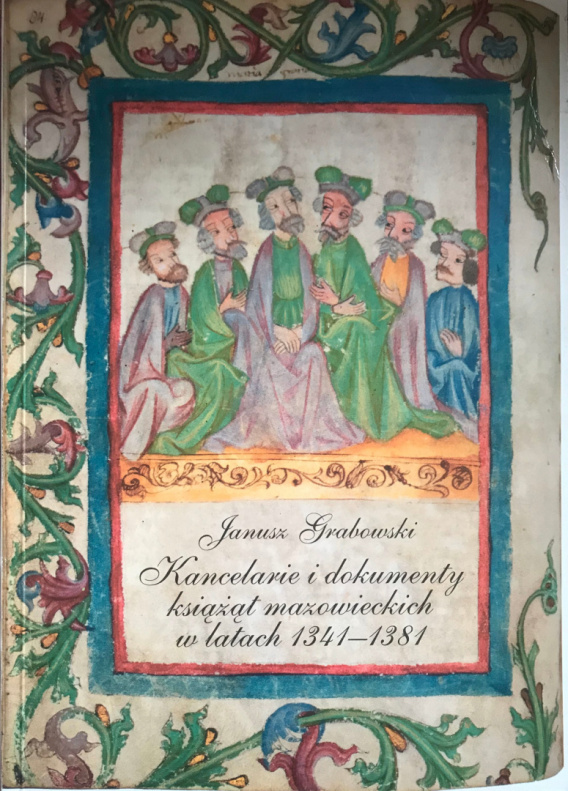 Janusz Grabowski
Kancelarie i dokumenty
książąt mazowieckich
w latach 1341–1381